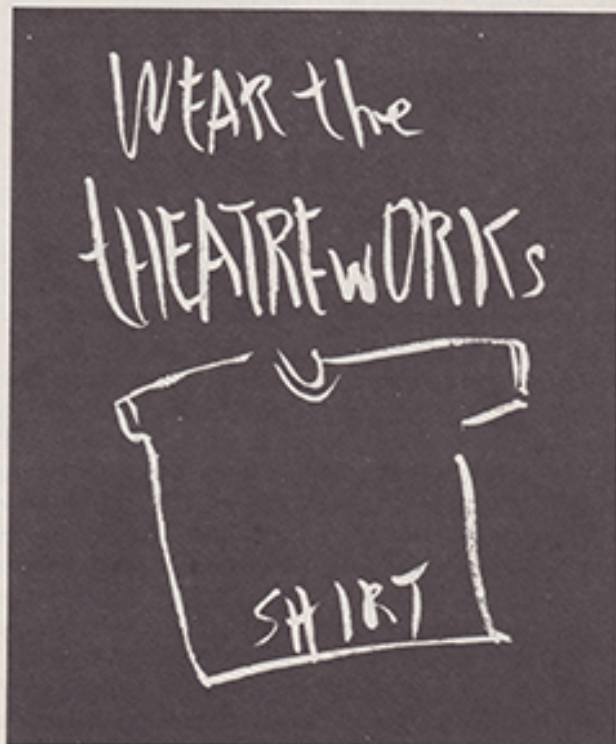 WEAR the
tHEATREwORKs
SHIRT